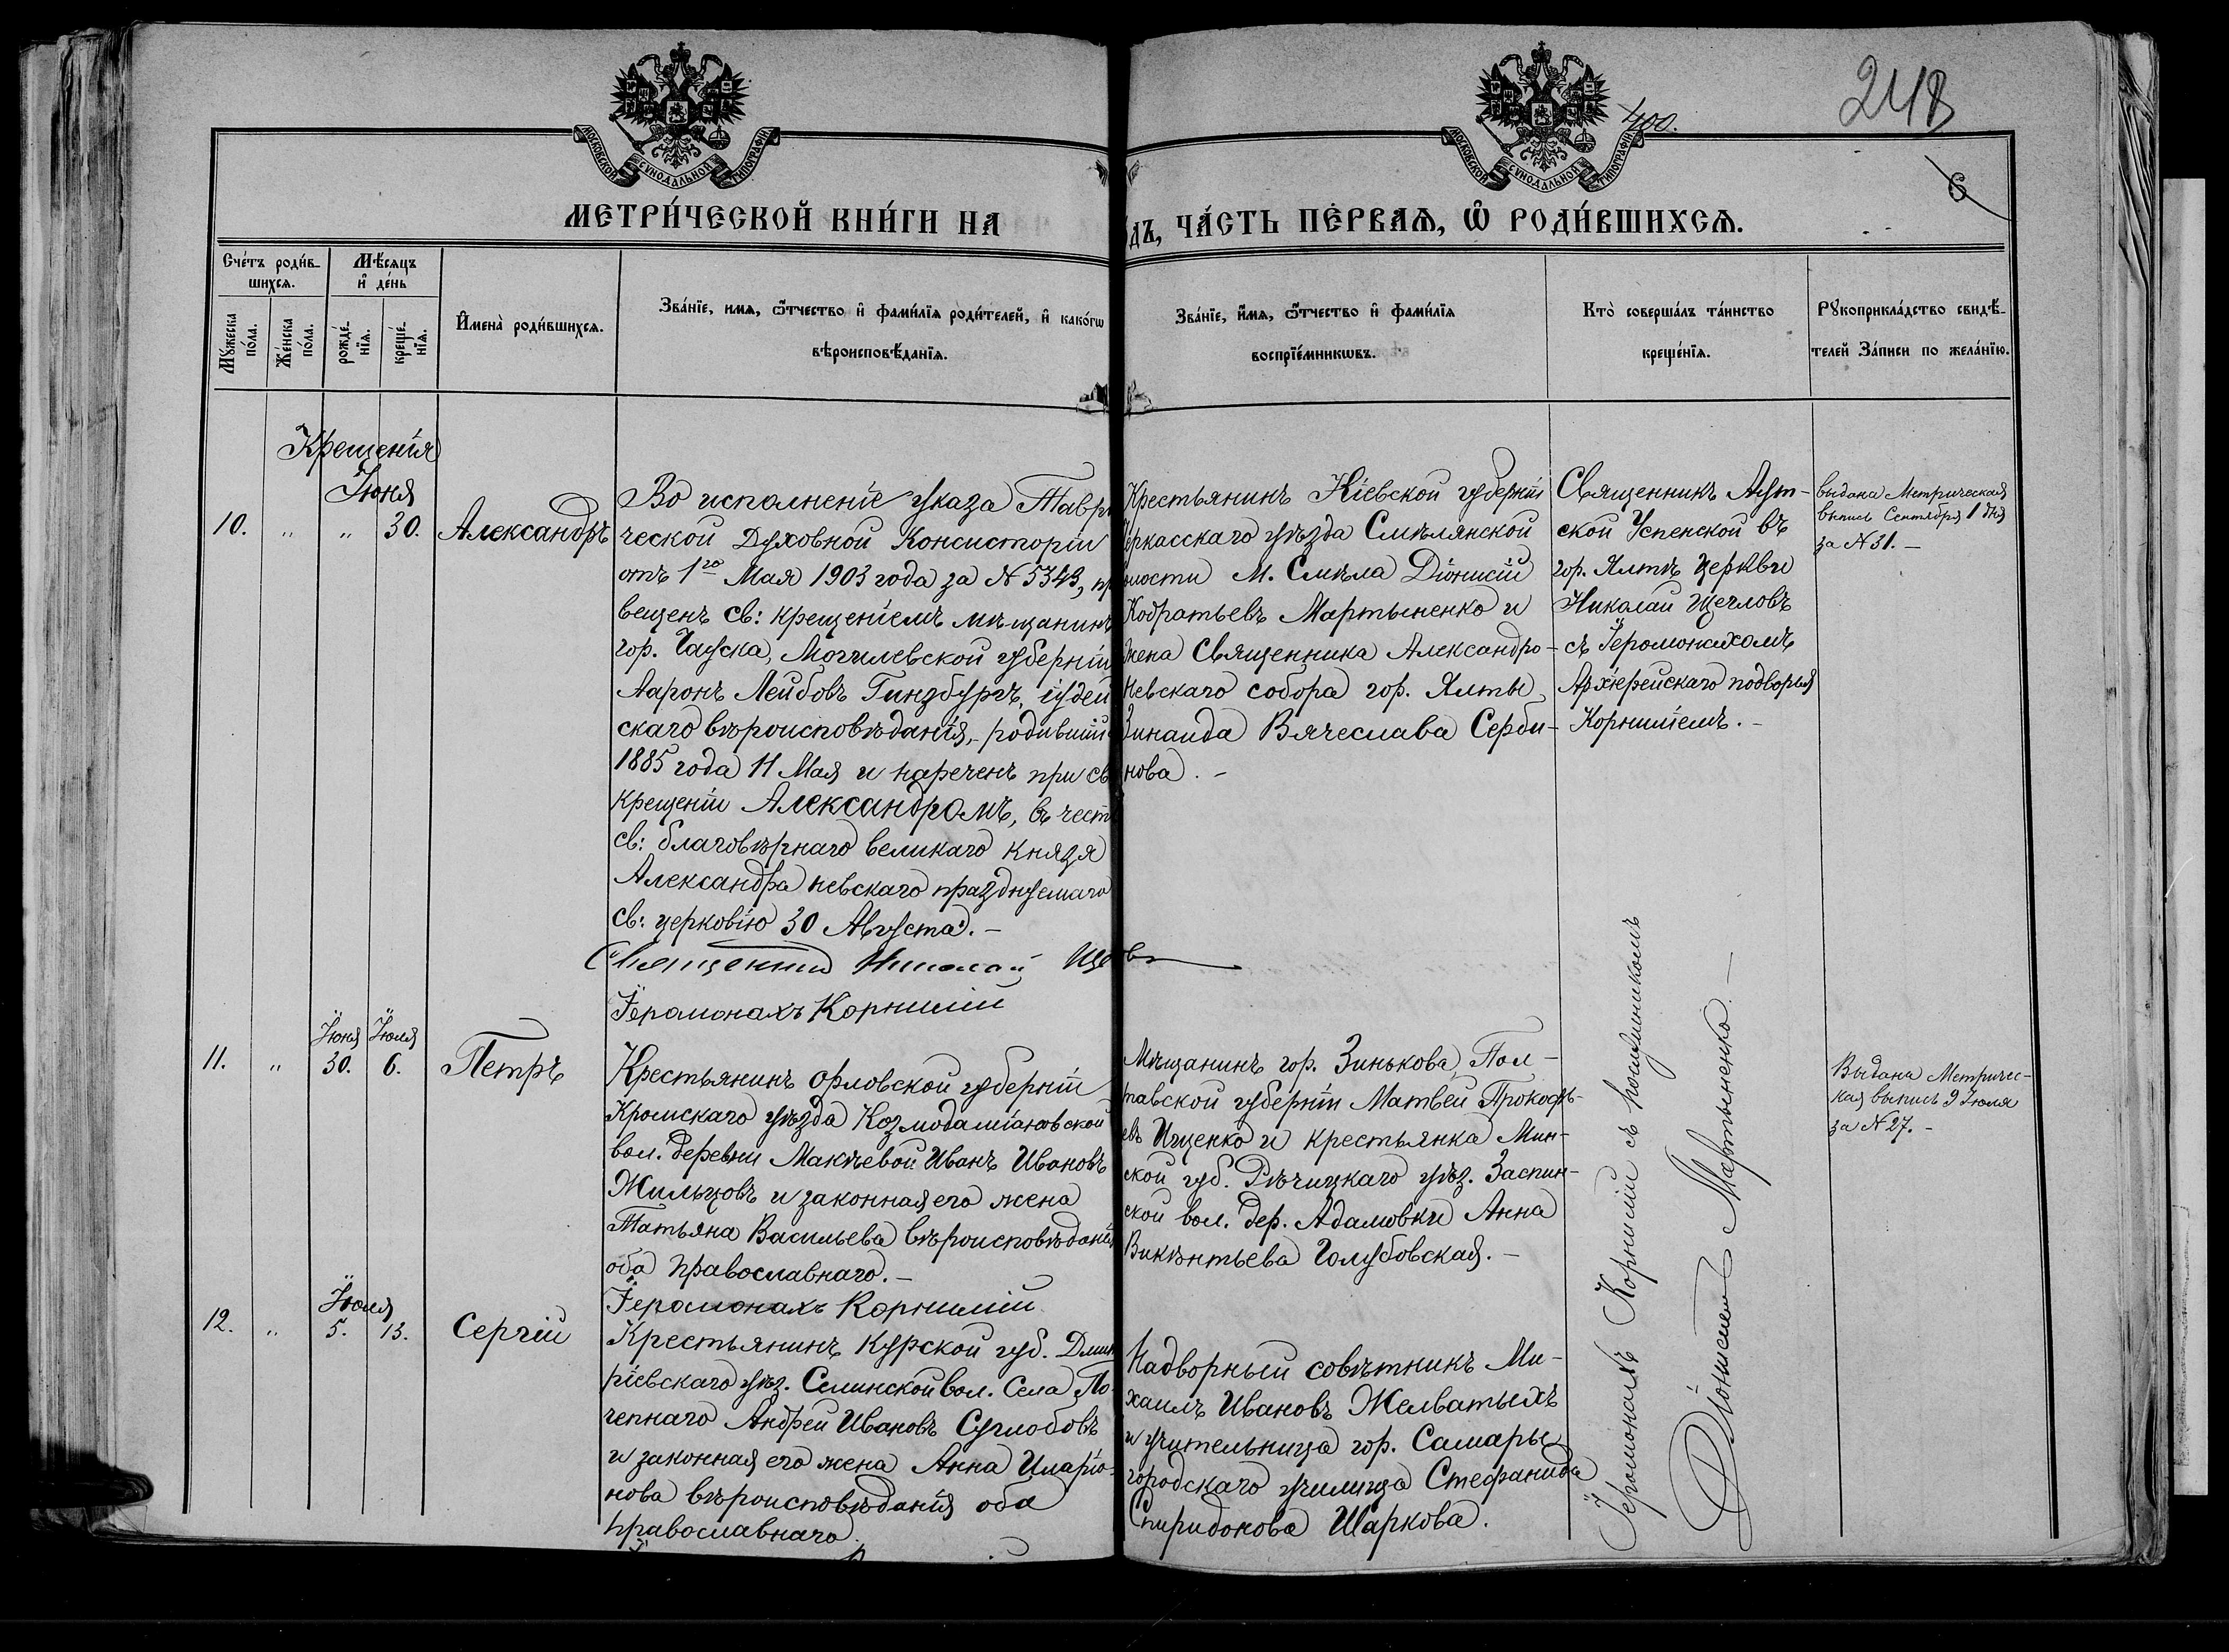 МОСКОВСКОЙ СѴНОДАЛЬНОЙ ТИПОГРАФІИ
МОСКОВСКОЙ СѴНОДАЛЬНОЙ ТИПОГРАФІИ
400.
248
6
МЕТРИ́ЧЕСКОЙ КНИ́ГИ НА
дъ, ЧА́СТЬ ПЕ́РВАѦ, Ѡ҆ РОДИ́ВШИХСѦ.
Сче́тъ роди́в-
шихсѧ.
Мѣ́сѧцъ
и҆ де́нь
Мꙋ́жеска
по́ла.
Же́нска
по́ла.
рожде́-
нїѧ.
креще́-
нїѧ.
И҆мена̀ роди́вшихсѧ.
Зва́нїе, имѧ, ѿтчество и҆ фами́лїѧ роди́телей, и҆ како́гѡ
вѣроисповѣ́данїѧ.
Зва́нїе, и҆мѧ, ѿтчество и҆ фами́лїѧ
воспрїе́мникѡвъ.
Кто̀ соверша́лъ та́инство
креще́нїѧ.
Рꙋкоприкла́дство свидѣ́-
телей За́писи по жела́нїю.
Крещенія
Іюня
10. " " 30. Александръ
Во исполненіе указа Таври
ческой Духовной Консисторіи
отъ 1го Мая 1903 года за N 5343, пр
вещенъ св: крещеніемъ мѣщанинъ
гор. Чауска, Могилевской губерніи
Ааронъ Лейбовъ Гинзбургъ, іудей
скаго вѣроисповѣданія,- родивші
1885 года 11 Мая и нареченъ при св
крещеніи Александромъ, въ чест
св: благовѣрнаго великаго князя
Александра невскаго празднуемаго
св: церковію 30 Августа. -
Священник Николай Ще въ
Іеромонахъ Корнилій
Крестьянинъ Кіевской губерніи
Черкасскаго уѣзда Смѣлянской
олости М. Смѣла Діонисій
Кодратьевъ Мартыненко и
жена Священника Александро-
Невскаго собора гор. Ялты
Зинаида Вячеслава Серби-
нова. -
Священникъ Аут-
ской Успенской въ
гор. Ялтѣ церкви
Николай Щегловъ
съ Іеромонахомъ
Архіерейскаго подворья
Корниліемъ. -
выдана Метрическая
выпись Сентября 1 дня
за N 31. -
Іюня Іюля
11. " 30. 6. Петръ
Крестьянинъ Орловской губерніи
Кромскаго уѣзда Козмодаміановской
вол. деревни Макѣевой Иванъ Ивановъ
Жильцовъ и законная его жена
Татьяна Васильева вѣроисповѣданія
оба православнаго. -
Іеромонахъ Корнилій
Мѣщанинъ гор. Зинькова, Пол-
тавской губерніи Матвей Прокофь-
евъ Ищенко и крестьянка Мин-
ской губ. Рѣчицкаго уѣз. Заспин-
ской вол. дер. Адамовки Анна
Викентьева Голубовская. -
Выдана Метричес-
кая выпись 9 Іюля
за N 27. -
Іеромонахъ Корнилій съ псаломщикомъ
Діонисіем Мартыненко. -
Іюля
12. " 5. 13. Сергій
Крестьянинъ Курской губ. Дмит
ріевскаго уѣз. Селинской вол. Села По-
чепнаго Андрей Ивановъ Суглобовъ
и законная его жена Анна Иларіо-
нова вѣроисповѣданія оба
православнаго.
Надворный совѣтникъ Ми-
хаилъ Ивановъ Желватыхъ
и учительница гор. Самары
городскаго училища Стефанида
Спиридонова Шаркова.